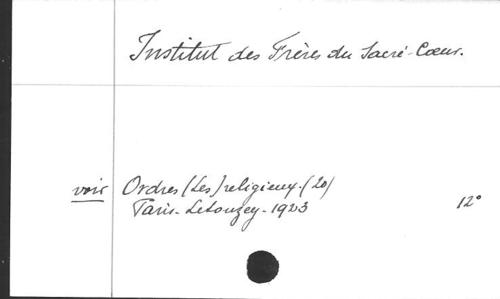 Institut des Frères du Sacré-Cœur.
voir Ordres (Les) religieux. (20)
Paris - Letouzey - 1923 12°